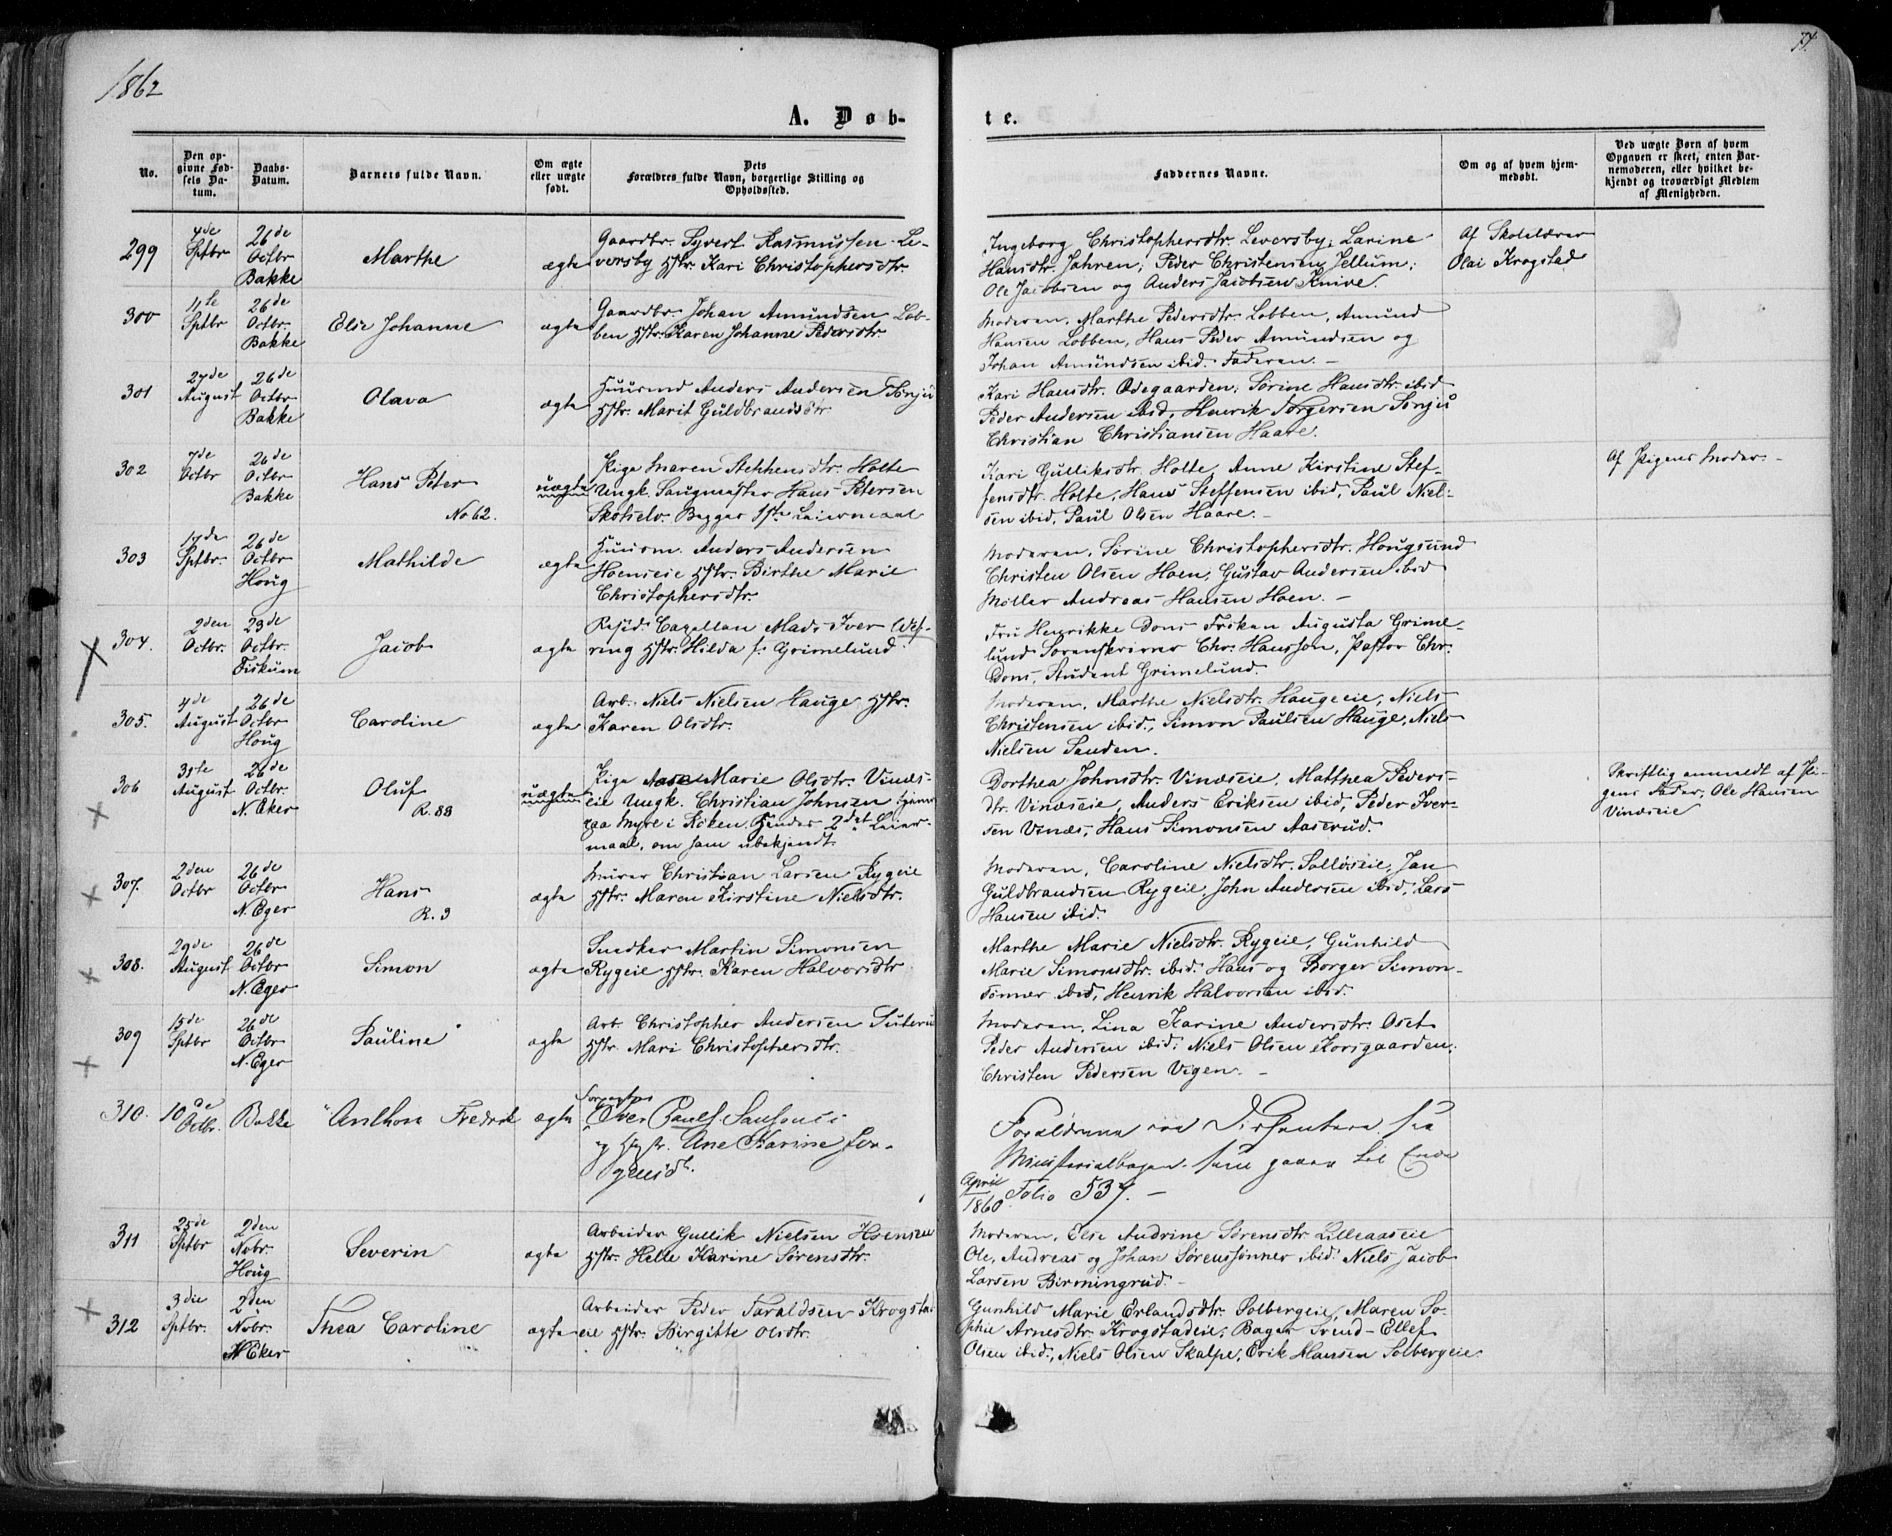 1862
77.
A. Døb-
te.
No.
Den op-
givne Fød-
sels Da-
tum.
Daabs-
Datum.
Barnets fulde Navn.
Om ægte
eller uægte
født.
Dets
Forældres fulde Navn, borgerlige Stilling og
Opholdssted.
Faddernes Navne.
Om og af hvem hjem-
medøbt.
Ved uægte Børn af hvem
Opgaven er skeet, enten Bar-
nemoderen, eller hvilket be-
kjendt og troværdigt Medlem
af Menigheden.
299
4de
Sptbr
26de
Octbr
Bakke
Marthe
ægte
Gaardbr. Syvert Rasmussen Le-
versby Hstr. Kari Christophersdtr.
Ingeborg Christophersdtr. Leversby, Larine
Hansdtr. Jahren; Peder Christensen Jellum;
Ole Jacobsen og Anders Jacobsen Knive.
Af Skolelærer
Olai Krogstad
300
11te
Sptbr
26de
Octbr.
Bakke
Else Johanne
ægte
Gaardbr. Johan Amundsen Lob-
ben Hstr. Karen Johanne Pedersdtr.
Moderen, Marthe Pedersdtr. Lobben, Amund
Hansen Lobben, Hans Peder Amundsen og
Johan Amundsen ibid. Faderen. –
301
27de
August
26de
Octbr
Bakke
Olava
ægte
Huusmd Anders Andersen
Hstr. Marit Guldbrandsdtr
Kari Hansdtr. Ødegaarden; Sørine Hansdtr. ibid
Peder Andersen ibid, Henrik
Christian Christiansen Haare.
302
7de
Octbr
26de
Octbr
Bakke
Hans Peter
No 62.
uægte
Pige Maren Steffensdtr. Holte
Ungk. Saugmester Hans Petersen
Skotselv. Begges 1ste Leiermaal
Kari Gulliksdtr. Holte, Anne Kirstine Stef-
fensdtr. Holte, Hans Steffensen ibid, Paul Niel-
sen ibid, Paul Olsen Haare. –
Af Pigens Moder –
303
17de
Sptbr.
26de
Octbr
Houg
Mathilde
ægte
Huusm. Anders Andersen
Hoenseie Hstr. Birthe Marie
Christophersdtr.
Moderen, Sørine Christophersdtr. Hougsund
Christen Olsen Hoen, Gustav Andersen ibid
Møller Andreas Hansen Hoen. –
304.
2den
Octbr.
23de
Octbr.
Fiskum
Jacob
ægte
Resid. Capellan Mads Iver Wef-
ring Hstr. Hilda f. Grimelund.
Fru Henrikke Dons Frøken Augusta Grime-
lund Sorenskriver Chr. Hansson, Pastor Chr.
Dons, Student Grimelund.
305.
4de
August
26de
Octbr
Houg
Caroline
ægte
Arb. Niels Nielsen Hauge Hstr.
Karen Olsdtr.
Moderen, Marthe Nielsdtr. Haugeeie, Niels
Christensen ibid., Simon Paulsen Hauge, Niels
Nielsen Sanden.
306
31te
August
26de
Octbr.
N. Eker
Oluf
R. 88
uægte
Pige Marie Olsdtr. Vinæs-
eie Ungk. Christian Johnsen tjener
paa Myre i Røken. Hendes 2det Leier-
maal, om ham ubekjendt.
Dorthea Johnsdtr. Vinæseie, Matthea Peders-
dtr. Vinæseie, Anders Eriksen ibid, Peder Iver-
sen Vinæs, Hans Simonsen Aaserud.
Skriftlig anmeldt af Pi-
gens Fader, Ole Hansen
Vinæseie
307.
2den
Octbr
26de
Octbr
N. Eger
Hans
R. 3
ægte
Murer Christian Larsen Rygeie
Hstr. Maren Kirstine Nielsdtr.
Moderen, Caroline Nielsdtr. Jan
Guldbrandsen Rygeie, John Andersen ibid, Lars
Hansen ibid.
308.
29de
August
26de
Octbr
N. Eger
Simon
ægte
Snedker Martin Simonsen
Rygeie Hstr. Karen Halvorsdtr.
Marthe Marie Nielsdtr. Rygeie, Gunhild
Marie Simonsdtr. ibid. Hans og Borger Simon-
sønner ibid, Henrik Halvorsen ibid.
309
15de
Sptbr
26de
Octbr
N. Eger
Pauline
ægte
Arb. Christopher Andersen
Hstr. Mari Christophersdtr.
Moderen, Lina Karine Andersdtr. Oset
Peder Andersen ibid; Niels Olsen Korsgaarden;
Christen Pedersen Vigen. –
310.
10de
Octbr.
Bakke
Anthon Fredrik
ægte
Iver Pauls
og Hstr. Ane Karine Jør-
gensdt.
Forældrene ere Dissentere. See
Ministerialbogen som gaaer til Ende
April
1860
Folio 537. –
311
25de
Sptbr
2den
Nvbr.
Houg
Severin
ægte
Arbeider Gullik Nielsen Hoenseie
Hstr. Helle Karine Sørensdtr.
Moderen, Else Andrine Sørensdtr Lilleaaseie
Ole, Andreas og Johan Sørenssønner ibid. Niels Jacob
Larsen Birmingrud. –
312
3die
Sptbr.
2den
Nvbr.
N Eker
Thea Caroline
ægte
Arbeider Peder Taraldsen Krogstad
eie Hstr. Birgitte Olsdtr.
Gunhild Marie Erlandsdtr. Solbergeie, Maren So-
phie Arnesdtr. Krogstadeie; Bager Svend Ellef
Olsen ibid., Niels Olsen Skalpe, Erik Hansen Solbergeie.